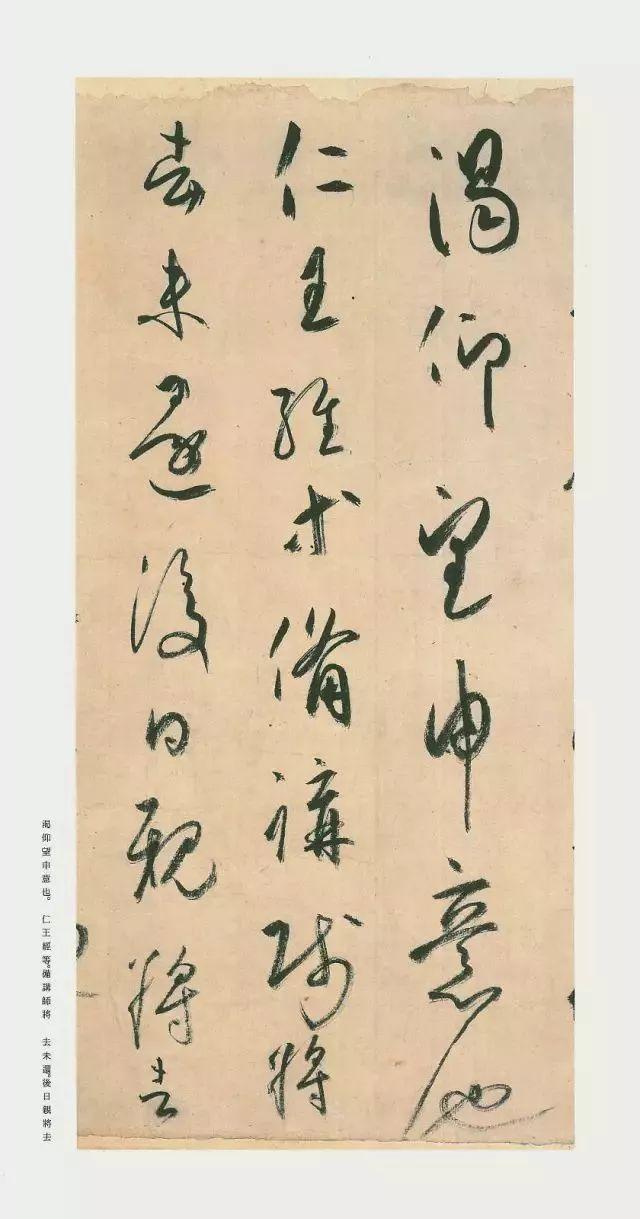 渴仰望申意也
仁王經等備講師將
去未還後日親將去
渴仰望申意也。仁王經等。備講師將 去未還。後日親將去